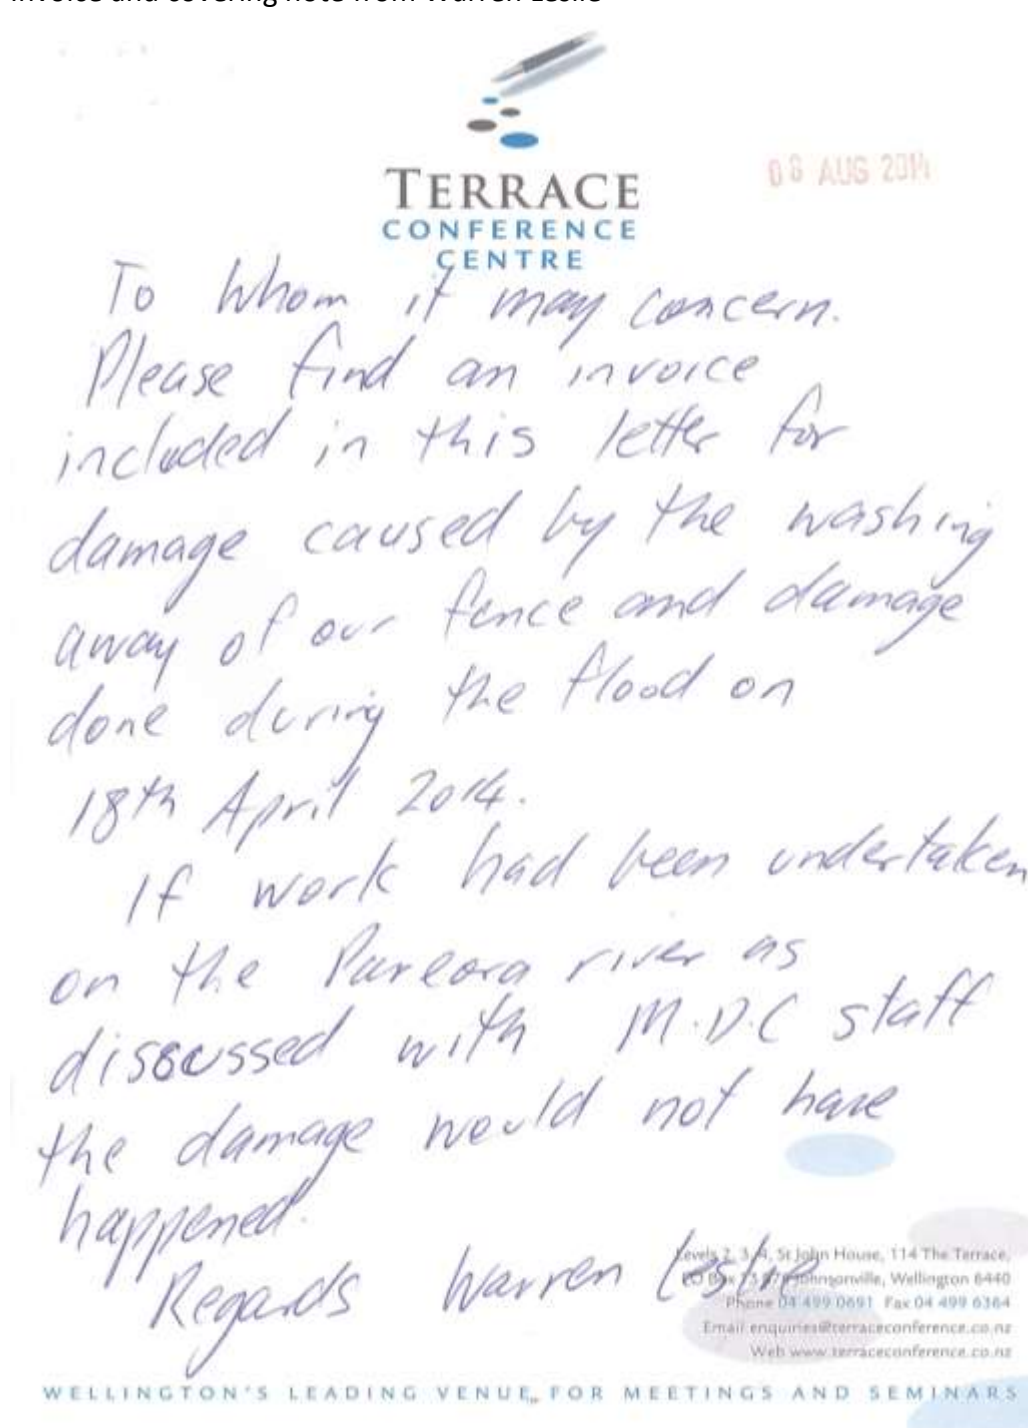 Invoice and covering note from Warren Leslie
TERRACE
CONFERENCE
CENTRE
08 AUG 2014
To Whom it may concern.
Please find an invoice
included in this letter for
damage caused by the washing
away of our fence and damage
done during the flood on
18th April 2014.
If work had been undertaken
on the Pareora river as
discussed with M.D.C staff
the damage would not have
happened.
Regards Warren Leslie
Levels 2, 3, 4, St John House, 114 The Terrace,
PO Box 13 Johnsonville, Wellington 6440
Phone 04 499 0691 Fax 04 499 6364
Email enquiries@terraceconference.co.nz
Web www.terraceconference.co.nz
WELLINGTON'S LEADING VENUE FOR MEETINGS AND SEMINARS